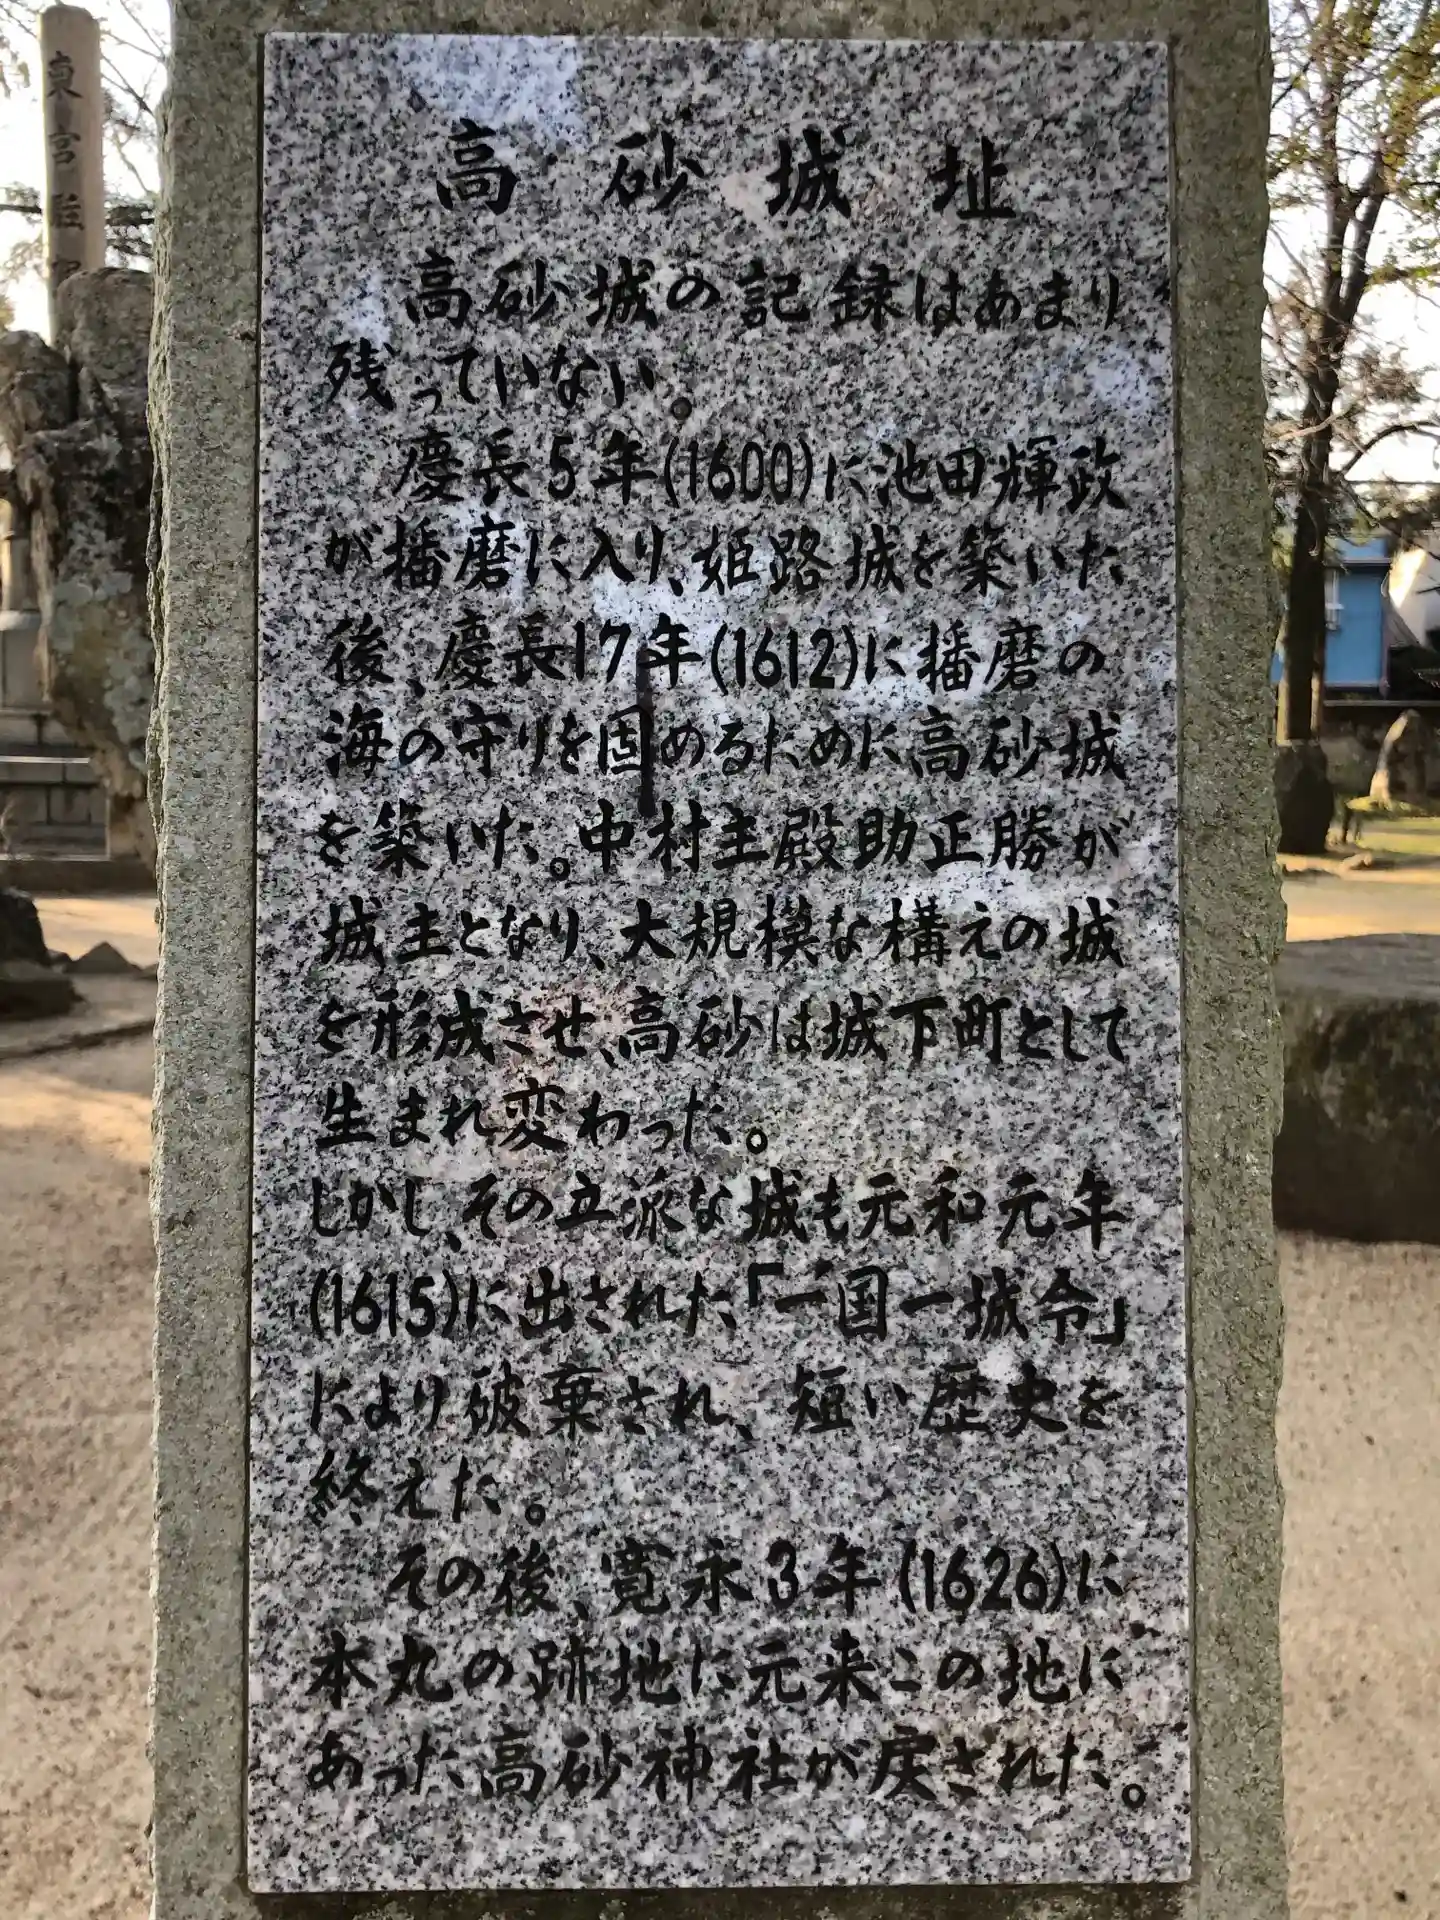 東宮
高砂城址
高砂城の記録はあまり
残っていない。
慶長5年(1600)に池田輝政
が播磨に入り、姫路城を築いた
後、慶長17年(1612)に播磨の
海の守りを固めるために高砂城
を築いた。中村主殿助正勝が
城主となり、大規模な構えの城
を形成させ、高砂は城下町として
生まれ変わった。
しかし、その立派な城も元和元年
(1615)に出された「一国一城令」
により破棄され、短い歴史を
終えた。
その後、寛永3年(1626)に
本丸の跡地に元来この地に
あった高砂神社が戻された。